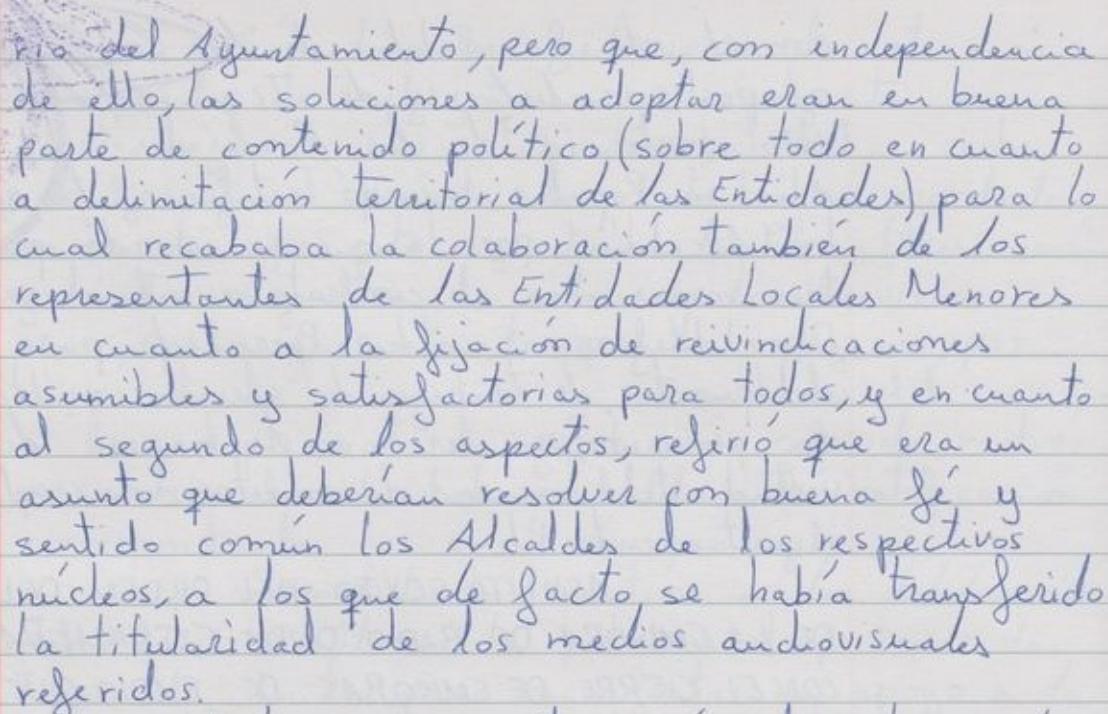 rio del Ayuntamiento, pero que, con independencia
de ello, las soluciones a adoptar eran en buena
parte de contenido político (sobre todo en cuanto
a delimitación territorial de las Entidades) para lo
cual recababa la colaboración también de los
representantes de las Entidades Locales Menores
en cuanto a la fijación de reivindicaciones
asumibles y satisfactorias para todos, y en cuanto
al segundo de los aspectos, refirió que era un
asunto que deberían resolver con buena fé y
sentido común los Alcaldes de los respectivos
núcleos, a los que de facto se había transferido
la titularidad de los medios audiovisuales
referidos.